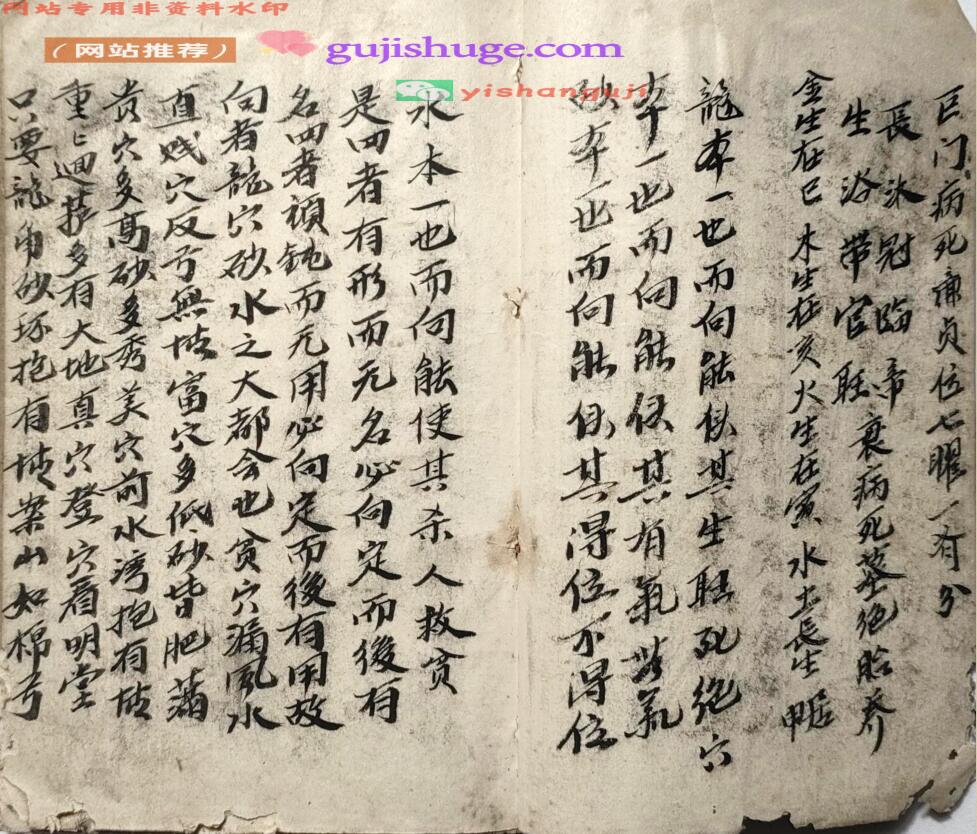 网站专用非资料水印
（网站推荐）
gujishuge.com
yishanguji
巨门病死廉贞位七曜一有分
長沐冠臨帝
生浴带官旺衰病死墓绝胎养
金生在巳木生在亥火生在寅水土長生申居
龍本一也而向能使其生旺死绝穴
本一也而向能使其有氣無氣
砂本也而向能使其得位不得位
水本一也而向能使其杀人救贫
是四者有形而无名必向定而後有
名四者頑鈍而无用必向定而後有用故
向者龍穴砂水之大都会也贫穴漏風水
直贱穴反弓無城富穴多低砂皆肥满
贵穴多高砂多秀美穴前水湾抱有城
重重迴護多有大地真穴登穴看明堂
只要龍角砂环抱有城案山如棉弓